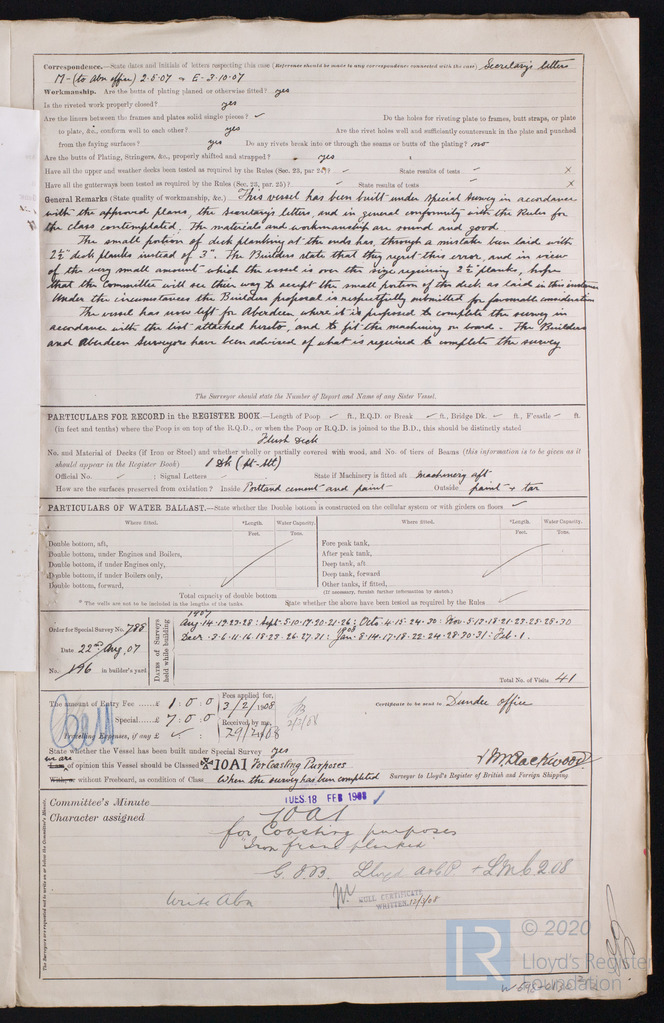 Correspondence.—State dates and initials of letters respecting this case (Reference should be made to any correspondence connected with the case) Secretary's letters
M - (to Abn office) 2.5.07 E - 3.10.07
Workmanship. Are the butts of plating planed or otherwise fitted? yes
Is the riveted work properly closed? yes
Are the liners between the frames and plates solid single pieces? ✓ Do the holes for riveting plate to frames, butt straps, or plate
to plate, &c., conform well to each other? yes Are the rivet holes well and sufficiently countersunk in the plate and punched
from the faying surfaces? yes Do any rivets break into or through the seams or butts of the plating? no
Are the butts of Plating, Stringers, &c., properly shifted and strapped? yes
Have all the upper and weather decks been tested as required by the Rules (Sec. 23, par 25)? ✓ State results of tests ✓ x
Have all the gutterways been tested as required by the Rules (Sec. 23, par. 25)? ✓ State results of tests ✓ x
General Remarks (State quality of workmanship, &c.) This vessel has been built under special survey in accordance
with the approved plans, the Secretary's letters, and in general conformity with the Rules for
the class contemplated. The materials and workmanship are sound and good.
The small portion of deck planking at the ends has, through a mistake been laid with
2½" deck planks instead of 3". The Builders state that they regret this error, and in view
of the very small amount which the vessel is over the size requiring 2½" planks, hope
that the Committee will see their way to accept the small portion of the deck, as laid in this instance
Under the circumstances the Builders proposal is respectfully submitted for favourable consideration
The vessel has now left for Aberdeen where it is proposed to complete the survey in
accordance with the list attached hereto, and to fit the machinery on board. The Builders
and Aberdeen Surveyors have been advised of what is required to complete the survey
The Surveyor should state the Number of Report and Name of any Sister Vessel.
PARTICULARS FOR RECORD in the REGISTER BOOK.—Length of Poop ✓ ft., R.Q.D. or Break ✓ ft., Bridge Dk. ✓ ft., F'castle ✓ ft.
(in feet and tenths) where the Poop is on top of the R.Q.D., or when the Poop or R.Q.D. is joined to the B.D., this should be distinctly stated
Flush Deck
No. and Material of Decks (if Iron or Steel) and whether wholly or partially covered with wood, and No. of tiers of Beams (this information is to be given as it
should appear in the Register Book) 1 Dk
Official No. ✓ ; Signal Letters ✓ State if Machinery is fitted aft machinery aft
How are the surfaces preserved from oxidation? Inside Portland cement and paint Outside paint + tar
PARTICULARS OF WATER BALLAST.—State whether the Double bottom is constructed on the cellular system or with girders on floors ✓
Where fitted. *Length. Water Capacity. Where fitted. *Length. Water Capacity.
Feet. Tons. Feet. Tons.
Double bottom, aft, Fore peak tank,
Double bottom, under Engines and Boilers, After peak tank,
Double bottom, if under Engines only, Deep tank, aft
Double bottom, if under Boilers only, Deep tank, forward
Double bottom, forward, Other tanks, if fitted,
(If necessary, furnish further information by sketch.)
Total capacity of double bottom
* The wells are not to be included in the lengths of the tanks State whether the above have been tested as required by the Rules ✓
Order for Special Survey No. 788
Date 22nd Aug. 07
No. 196 in builder's yard
Dates of Surveys held while building
1907
Aug. 14. 19. 23. 28 : Sept. 5. 10. 17. 20. 21. 26 : Octo. 4. 15. 24. 30 : Nov. 5. 13. 18. 21. 23. 25. 28. 30
Decr. 3. 6. 11. 16. 18. 23. 26. 27. 31 : 1908 Jan. 8. 14. 17. 18. 22. 24. 28. 30. 31 : Feb. 1.
Total No. of Visits 41
The amount of Entry Fee ... £ 1 : 0 : 0 Fees applied for, 3/2/1908 Certificate to be sent to Dundee office
Special ... £ 7 : 0 : 0 Received by me,
Travelling Expenses, if any £ ✓ : 29/2/08
State whether the Vessel has been built under Special Survey yes
we are
I am of opinion this Vessel should be Classed 10A1 For Coasting Purposes
With, or without Freeboard, as condition of Class When the survey has been completed Surveyor to Lloyd's Register of British and Foreign Shipping.
Committee's Minute TUES. 18 FEB 1908
Character assigned 10A1
for Coasting purposes
"Iron frame planked"
Lloyds A&CP + LMC 2.08
Write Abn
HULL CERTIFICATE
WRITTEN 12/3/08
The Surveyors are requested not to write on or below the Committee's Minute.
LR
© 2020
Lloyd's Register
Foundation